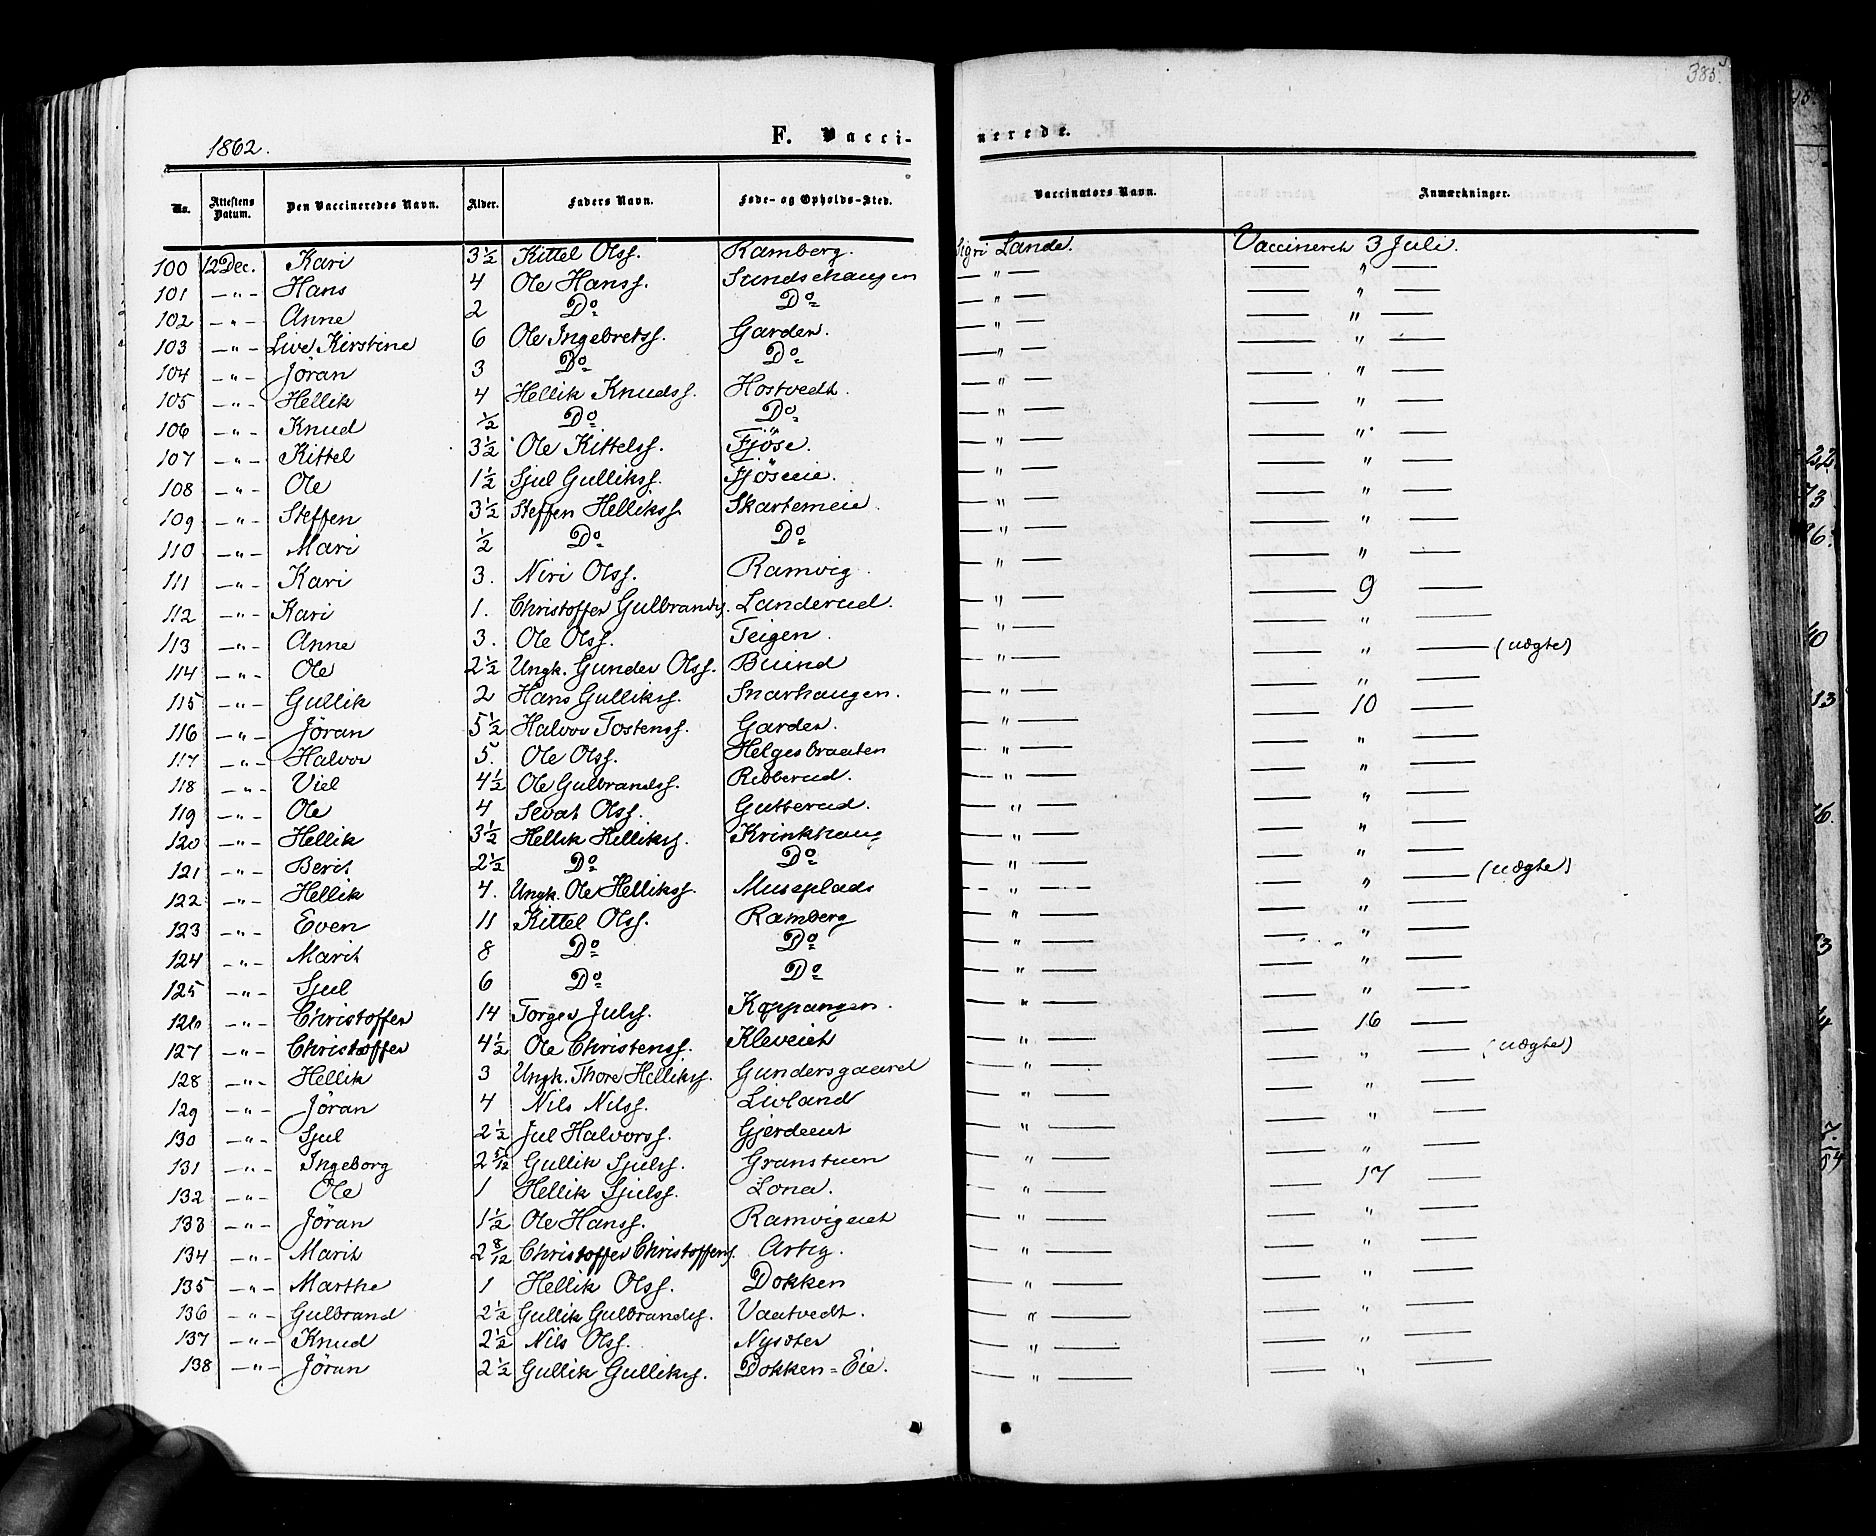 385.
1862.
F. Vacci-
nerede.
No. | Attestens Datum. | Den Vaccineredes Navn. | Alder. | Faders Navn. | Føde- og Opholds-Sted. | Vaccinators Navn. | Anmærkninger.
100 | 12 Dec. | Kari | 3½ | Kittel Olss. | Ramberg. | Sigri Lande. | Vaccineret 3 Juli.
101 | —"— | Hans | 4 | Ole Hanss. | Sundsehaugen | —"— | —"—
102 | —"— | Anne | 2 | Do | Do | —"— | —"—
103 | —"— | Live Kirstine | 6 | Ole Ingebretss. | Garden. | —"— | —"—
104 | —"— | Jöran | 3 | Do | Do | —"— | —"—
105 | —"— | Hellik | 4 | Hellik Knudss. | Hostvedt. | —"— | —"—
106 | —"— | Knud | ½ | Do | Do | —"— | —"—
107 | —"— | Kittel | 3½ | Ole Kittelss. | Fjöse. | —"— | —"—
108 | —"— | Ole | 1½ | Sjul Gullikss. | Fjöseie. | —"— | —"—
109 | —"— | Steffen | 3½ | Steffen Hellikss. | Skartemeie. | —"— | —"—
110 | —"— | Mari | ½ | Do | Do | —"— | —"—
111 | —"— | Kari | 3. | Niri Olss. | Ramvig. | —"— | —"—
112 | —"— | Kari | 1. | Christoffer Gulbrands. | Landerud. | —"— | — 9 —
113 | —"— | Anne | 3. | Ole Olss. | Teigen. | —"— | —"—
114 | —"— | Ole | 2½ | Ungk. Gunder Olss. | Buind | —"— | —"— (uægte)
115 | —"— | Gullik | 2 | Hans Gullikss. | Snarhaugen. | —"— | —"—
116 | —"— | Jöran | 5½ | Halvor Tostenss. | Garden. | —"— | — 10 —
117 | —"— | Halvor | 5. | Ole Olss. | Helgesbraaten | —"— | —"—
118 | —"— | Viel | 4½ | Ole Gulbrandss. | Ribberud. | —"— | —"—
119 | —"— | Ole | 4 | Sevat Olss. | Gutterud. | —"— | —"—
120 | —"— | Hellik | 3½ | Hellik Hellikss. | Krinkhaug | —"— | —"—
121 | —"— | Berit | 2½ | Do | Do | —"— | —"—
122 | —"— | Hellik | 4. | Ungk. Ole Hellikss. | Museplads | —"— | —"— (uægte)
123 | —"— | Even | 11 | Kittel Olss. | Ramberg | —"— | —"—
124 | —"— | Marit | 8 | Do | Do | —"— | —"—
125 | —"— | Sjul | 6 | Do | Do | —"— | —"—
126 | —"— | Christoffer | 14 | Torger Julss. | Koppangen. | —"— | —"—
127 | —"— | Christoffer | 4½ | Ole Christenss. | Kleveiet | —"— | — 16 —
128 | —"— | Hellik | 3 | Ungk. Thore Hellikss. | Gundersgaard | —"— | —"— (uægte)
129 | —"— | Jöran | 4 | Nils Nilss. | Livland | —"— | —"—
130 | —"— | Sjul | 2½ | Jul Halvorss. | Gjerdeeet | —"— | —"—
131 | —"— | Ingeborg | 2 5/12 | Gullik Sjulss. | Granstuen | —"— | —"—
132 | —"— | Ole | 1 | Hellik Sjulss. | Lona. | —"— | — 17 —
133 | —"— | Jöran | 1½ | Ole Hanss. | Ramvigeiet | —"— | —"—
134 | —"— | Marit | 2 8/12 | Christoffer Christoffers. | Arteg. | —"— | —"—
135 | —"— | Marthe | 1 | Hellik Olss. | Dokken | —"— | —"—
136 | —"— | Gulbrand | 2½ | Gullik Gulbrandss. | Vaatvedt. | —"— | —"—
137 | —"— | Knud | 2½ | Nils Olss. | Nyseter | —"— | —"—
138 | —"— | Jöran | 2½ | Gullik Gullikss. | Dokken=Eie. | —"— | —"—